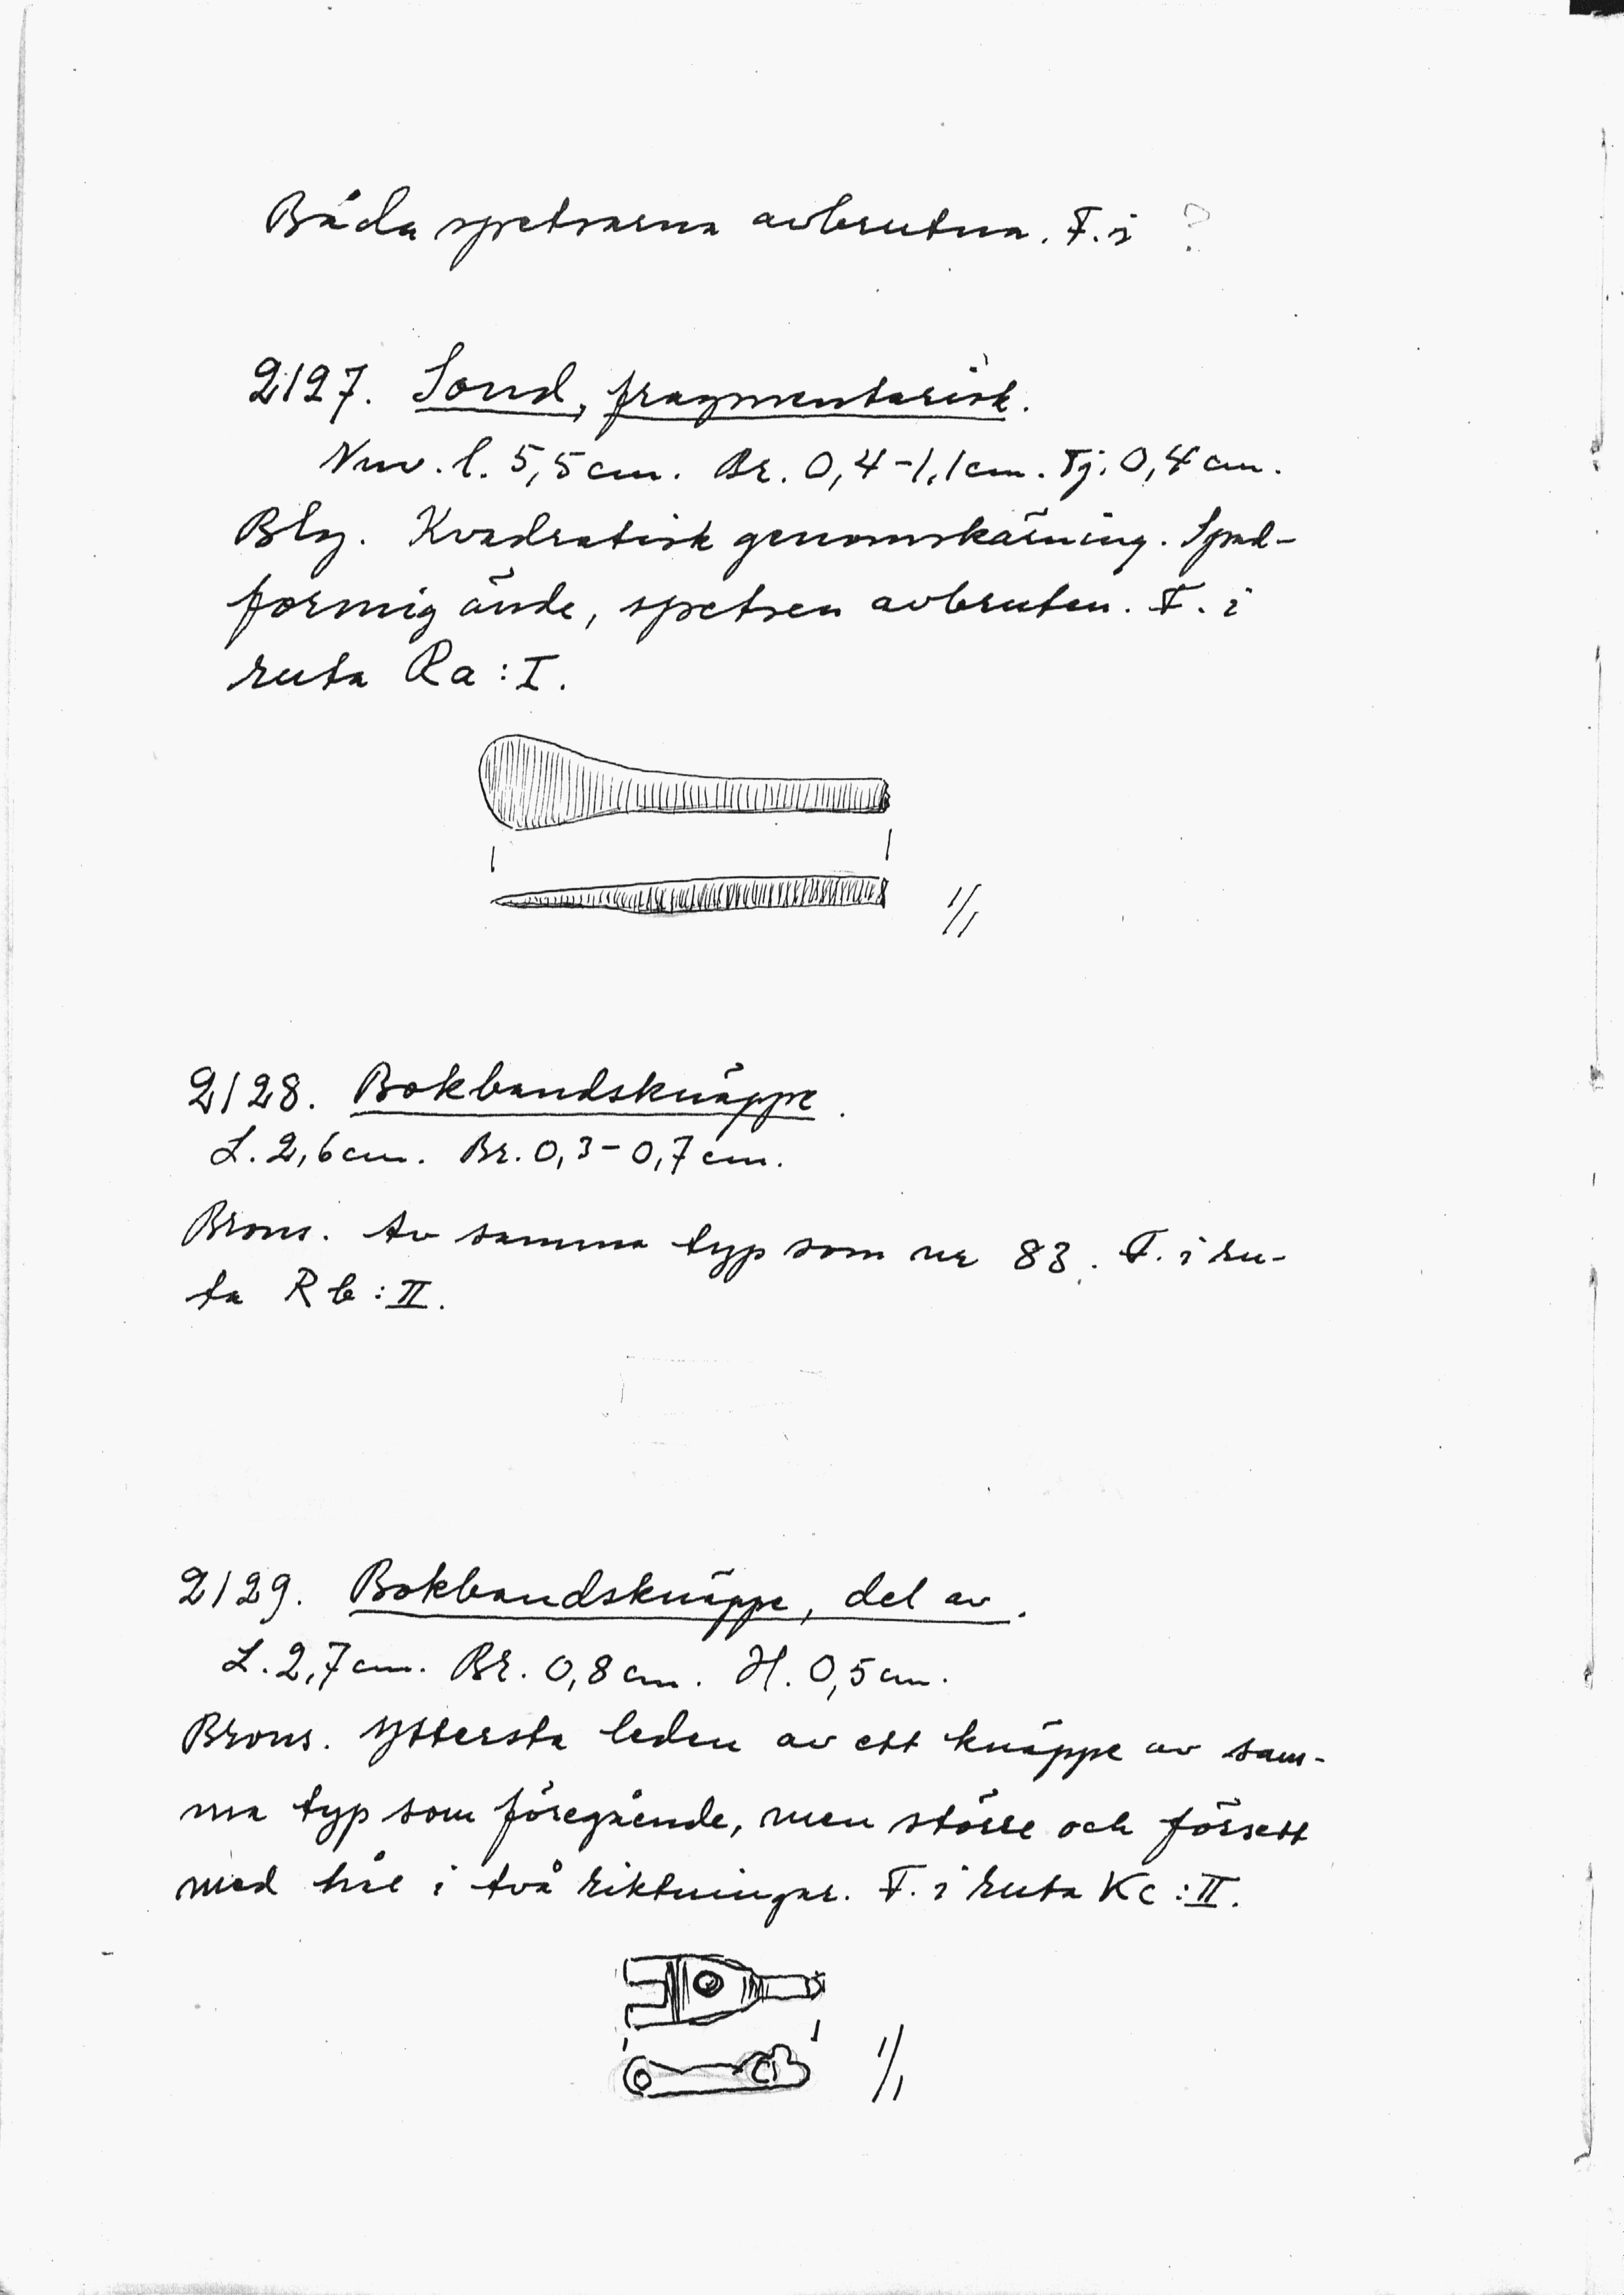 Båda spetsarna avbrutna. F. i ?
2127. Sond, fragmentarisk.
Nuv. l. 5,5 cm. Br. 0,4-1,1 cm. Tj. 0,4 cm.
Bly. Kvadratisk genomskärning. Spad-
formig ände, spetsen avbruten. F. i
ruta Ra:I.
1/1
2128. Bokbandsknäppe.
L. 2,6 cm. Br. 0,3-0,7 cm.
Brons. Av samma typ som nr 83. F. i ru-
ta Rb:II.
2129. Bokbandsknäppe, del av.
L. 2,7 cm. Br. 0,8 cm. H. 0,5 cm.
Brons. Yttersta leden av ett knäppe av sam-
ma typ som föregående, men större och försett
med hål i två riktningar. F. i ruta Kc:II.
1/1